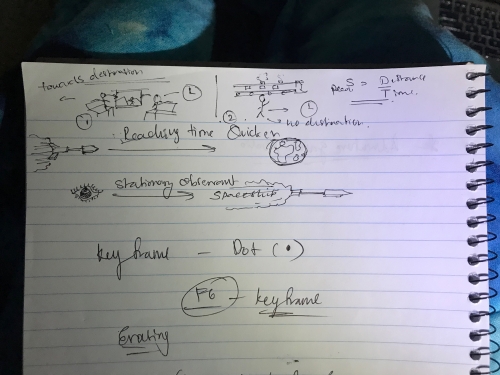 towards destination
S = Distance
Time
L
L
1
2
no destination.
Reaching time Quicker
Stationary observant
Spaceship
Key frame - Dot (•)
F6 - key frame